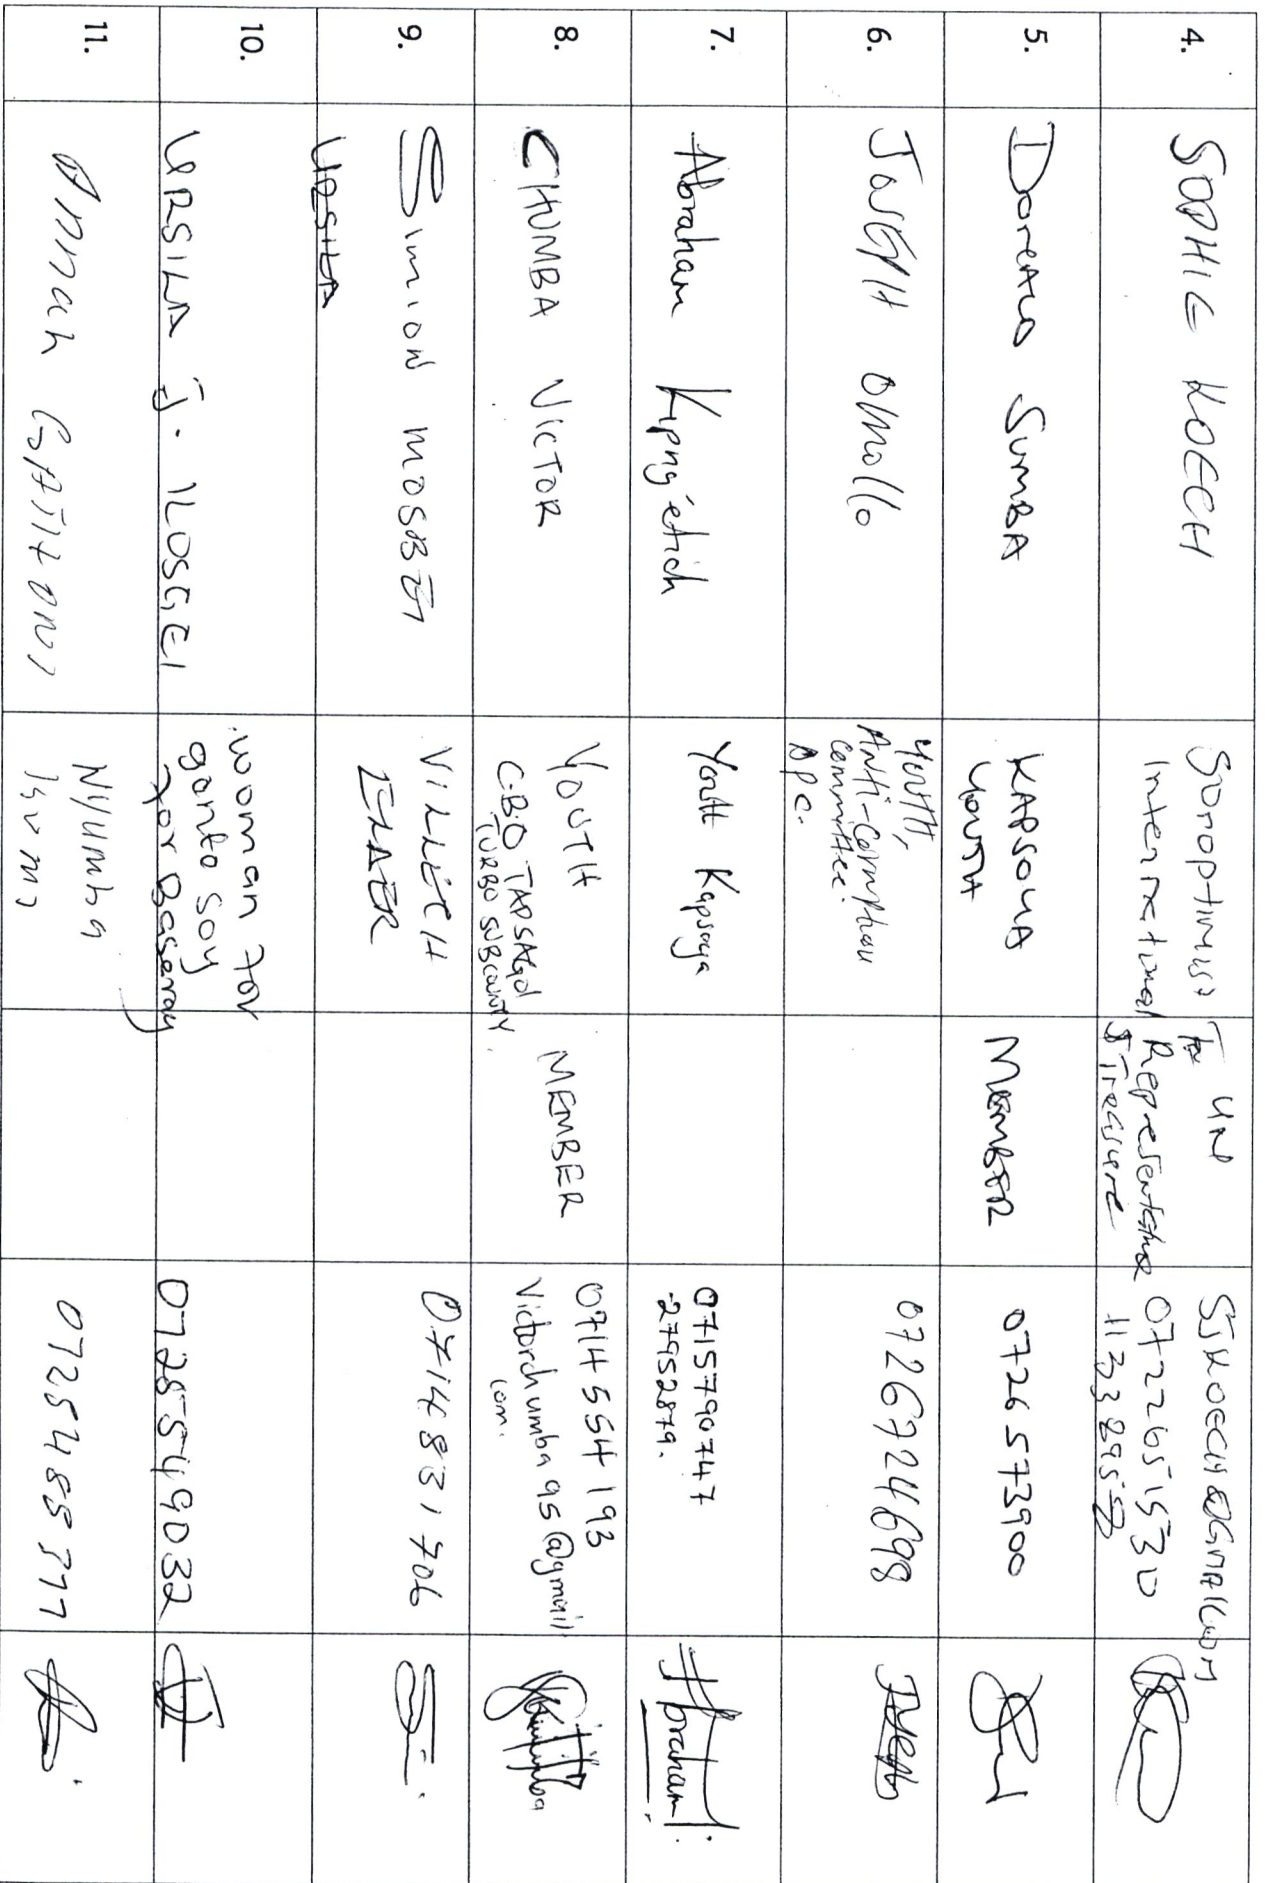 4.
SOPHIE KOECH
Soroptimist
International
UN
Representative
& Treasure
SJKOECH@GMAIL.COM
0722651530
11233895
5.
Doreald SUMBA
KAPSOYA
YOUTH
MEMBER
0726573900
6.
JOSEPH OMOLLO
YOUTH,
Anti-Corruption
Committee.
APC.
0726724698
7.
Abraham Kipng'etich
Youth Kapsoya
0715790747
-27952879.
Abraham
8.
CHUMBA VICTOR
YOUTH
C.B.O TAPSAGOI
TURBO SUBCOUNTY.
MEMBER
0714554193
Victorchumba95@gmail
com.
9.
Simion MOSBEI
VILLECH
ELAER
0714831706
URSILA
10.
URSILA J. KOSGEI
woman for
ganto soy
for Baseray
0728549032
11.
Annah GATHONI
Nyumba
kumi
0728488777